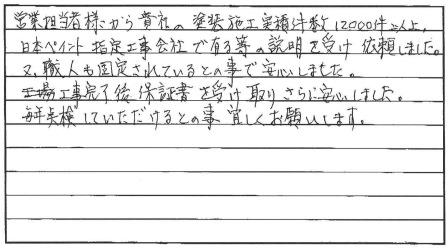 営業担当者様から貴社の塗装施工実積件数12000件以上、
日本ペイント指定工事会社で有る等の説明を受け依頼しました。
又、職人も固定されているとの事で安心しました。
工事完了後保証書を受け取りさらに安心しました。
毎年点検していただけるとの事宜しくお願いします。